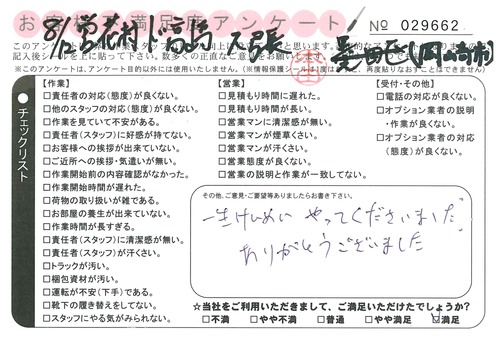 お客様満足度アンケート
No 029662
※このアンケートは、アンケート目的以外には使用いたしません。
チェックリスト
【作業】
□責任者の対応(態度)が良くない。
□他のスタッフの対応(態度)が良くない。
□作業を見ていて不安がある。
□責任者(スタッフ)に好感が持てない。
□お客様への挨拶が出来ていない。
□ご近所への挨拶・気遣いが無い。
□作業開始前の内容確認がなかった。
□作業開始時間が遅れた。
□荷物の取り扱いが雑である。
□お部屋の養生が出来ていない。
□作業時間が長すぎる。
□責任者(スタッフ)に清潔感が無い。
□責任者(スタッフ)が汗くさい。
□トラックが汚い。
□梱包資材が汚い。
□運転が不安(下手)である。
□靴下の履き替えをしてない。
□スタッフにやる気がみられない。
【営業】
□見積もり時間に遅れた。
□見積もり時間が長い。
□営業マンに清潔感が無い。
□営業マンが煙草くさい。
□営業マンが汗くさい。
□営業態度が良くない。
□営業の説明と作業が一致してない。
【受付・その他】
□電話の対応が良くない。
□オプション業者の説明・作業が良くない。
□オプション業者の対応(態度)が良くない。
その他、ご意見・ご要望等ありましたらお書き下さい。
一生けんめい やってくださいました
ありがとうございました
☆当社をご利用いただきまして、ご満足いただけたでしょうか?
□不満 □やや不満 □普通 □やや満足 ☑満足